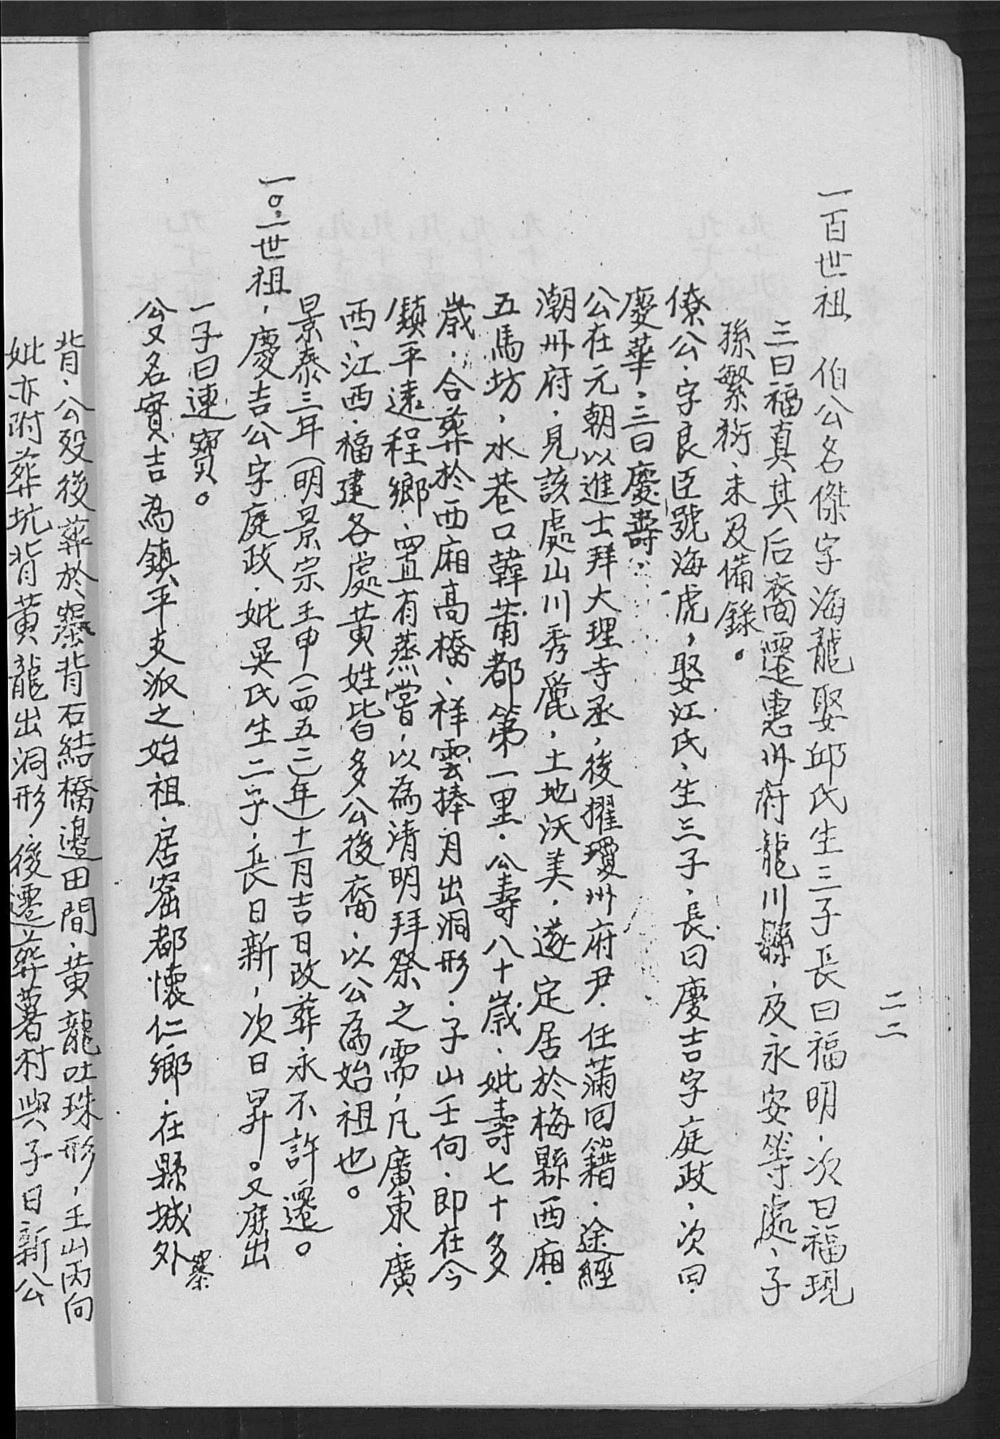 二二
一百世祖　伯公名傑字海龍娶邱氏生三子長曰福明．次曰福現
三曰福真其后裔遷惠州府龍川縣．及永安等處．子
孫繁衍．未及備錄。
僚公．字良臣號海虎，娶江氏．生三子．長曰慶吉字庭政．次曰．
慶華．三曰慶壽．
公在元朝以進士拜大理寺丞，後擢瓊州府尹．任滿回籍．途經
潮州府．見該處山川秀麗，土地沃美．遂定居於梅縣西廂．
五馬坊，水巷口韓莆都第一里．公壽八十歲．妣壽七十多
歲．合葬於西廂高橋．祥雲捧月出洞形．子山壬向．即在今
鎮平遠程鄉．置有蒸嘗．以為清明拜祭之需，凡廣東．廣
西．江西．福建各處黃姓皆多公後裔．以公為始祖也。
景泰三年（明景宗壬申（一四五二）年十一月吉日改葬永不許遷。
一0.一世祖．慶吉公字庭政．妣吳氏生二子，長日新，次日昇。又庶出
一子曰連寶。
公又名實吉為鎮平支派之始祖．居窰都懷仁鄉．在縣城外寨
背．公歿後葬於寨背石結橋邊田間．黃龍吐珠形，壬山丙向
妣亦附葬坑背黃龍出洞形．後遷葬薯村與子日新公